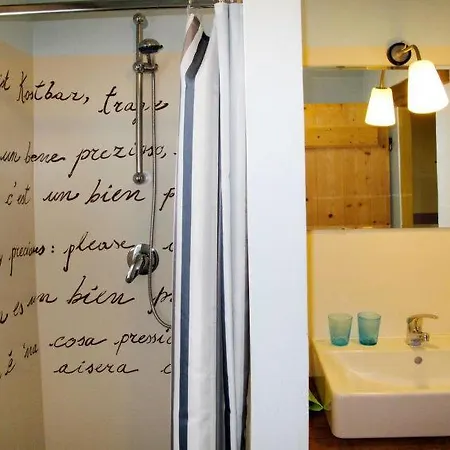 st Kostbar, trage
un bene prezioso,
c'est un bien p
precious: please
es un bien p
è 'na cosa pressi
aisera c